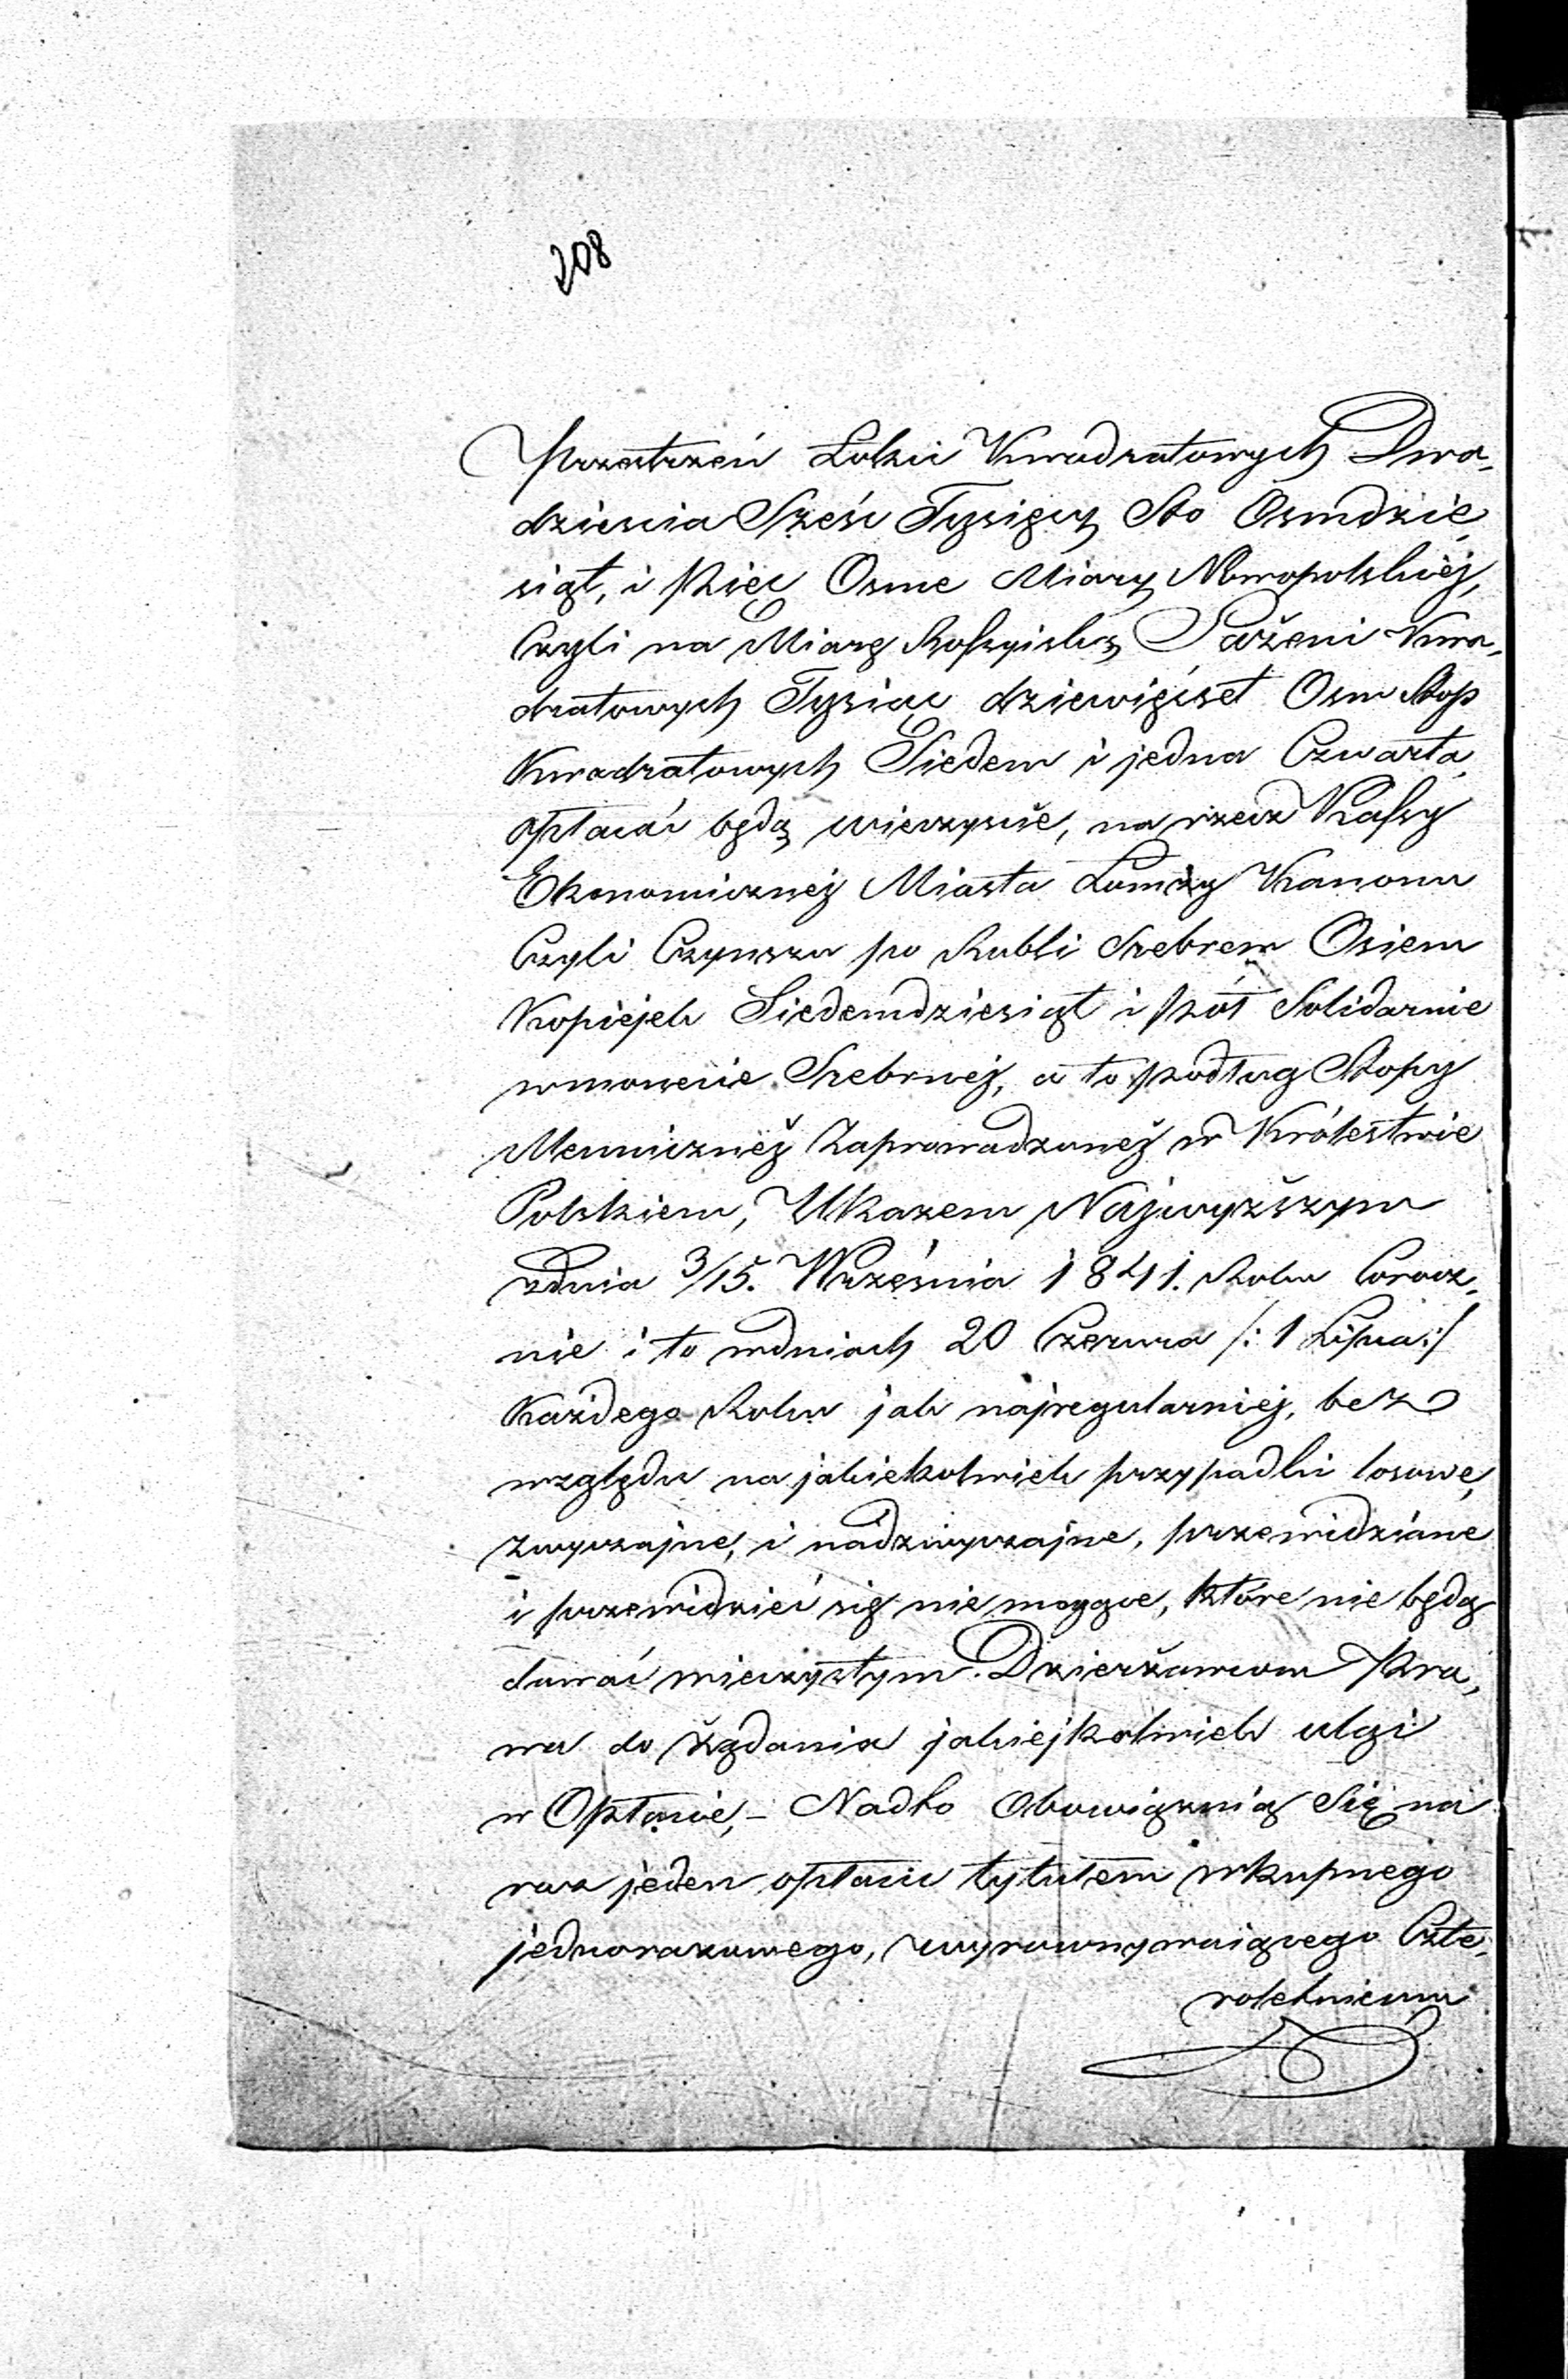 208
Przestrzeń Łokci Kwadratowych Dwa-
dzieścia Sześć Tysięcy Sto Osmdzie-
siąt, i Pięć Osme Miary Nowopolskiéj,
Czyli na Miarę Rossyiską Sażeni Kwa-
dratowych Tysiąc dziewięćset Osm Stop
Kwadratowych Siedem i jedna Czwarta,
opłacać będą wieczyście, na rzecz Kassy
Ekonomicznéj Miasta Łomży Kanonu
Czyli Czynszu po Rubli Srebrem Osiem
Kopiejek Siedemdziesiąt i pół Solidarnie
wmonecie Srebrnéj, a to podług Stopy
Menniczнéj Zaprowadzonéj w Królestwie
Polskiem, Ukazem Najwyższym
zdnia 3/15. Września 1841. Roku Corocz-
nie i to wdniach 20 Czerwca /: 1 Lipca :/
Każdego Roku jak najregularniéj, bez
względu na jakiekolwiek przypadki losowe,
zwyczajne, i nadzwyczajne, przewidziane
i przewidzieć się nie mogące, które nie będą
dawać wieczystym Dzierżawcom Pra-
wa do żądania jakiejkolwiek ulgi
w Opłacie, – Nadto Obowiązuią Się na
raz jeden opłacić tytułem wkupnego
jednorazowego, wyrownywaiącego Czte-
roletniemu